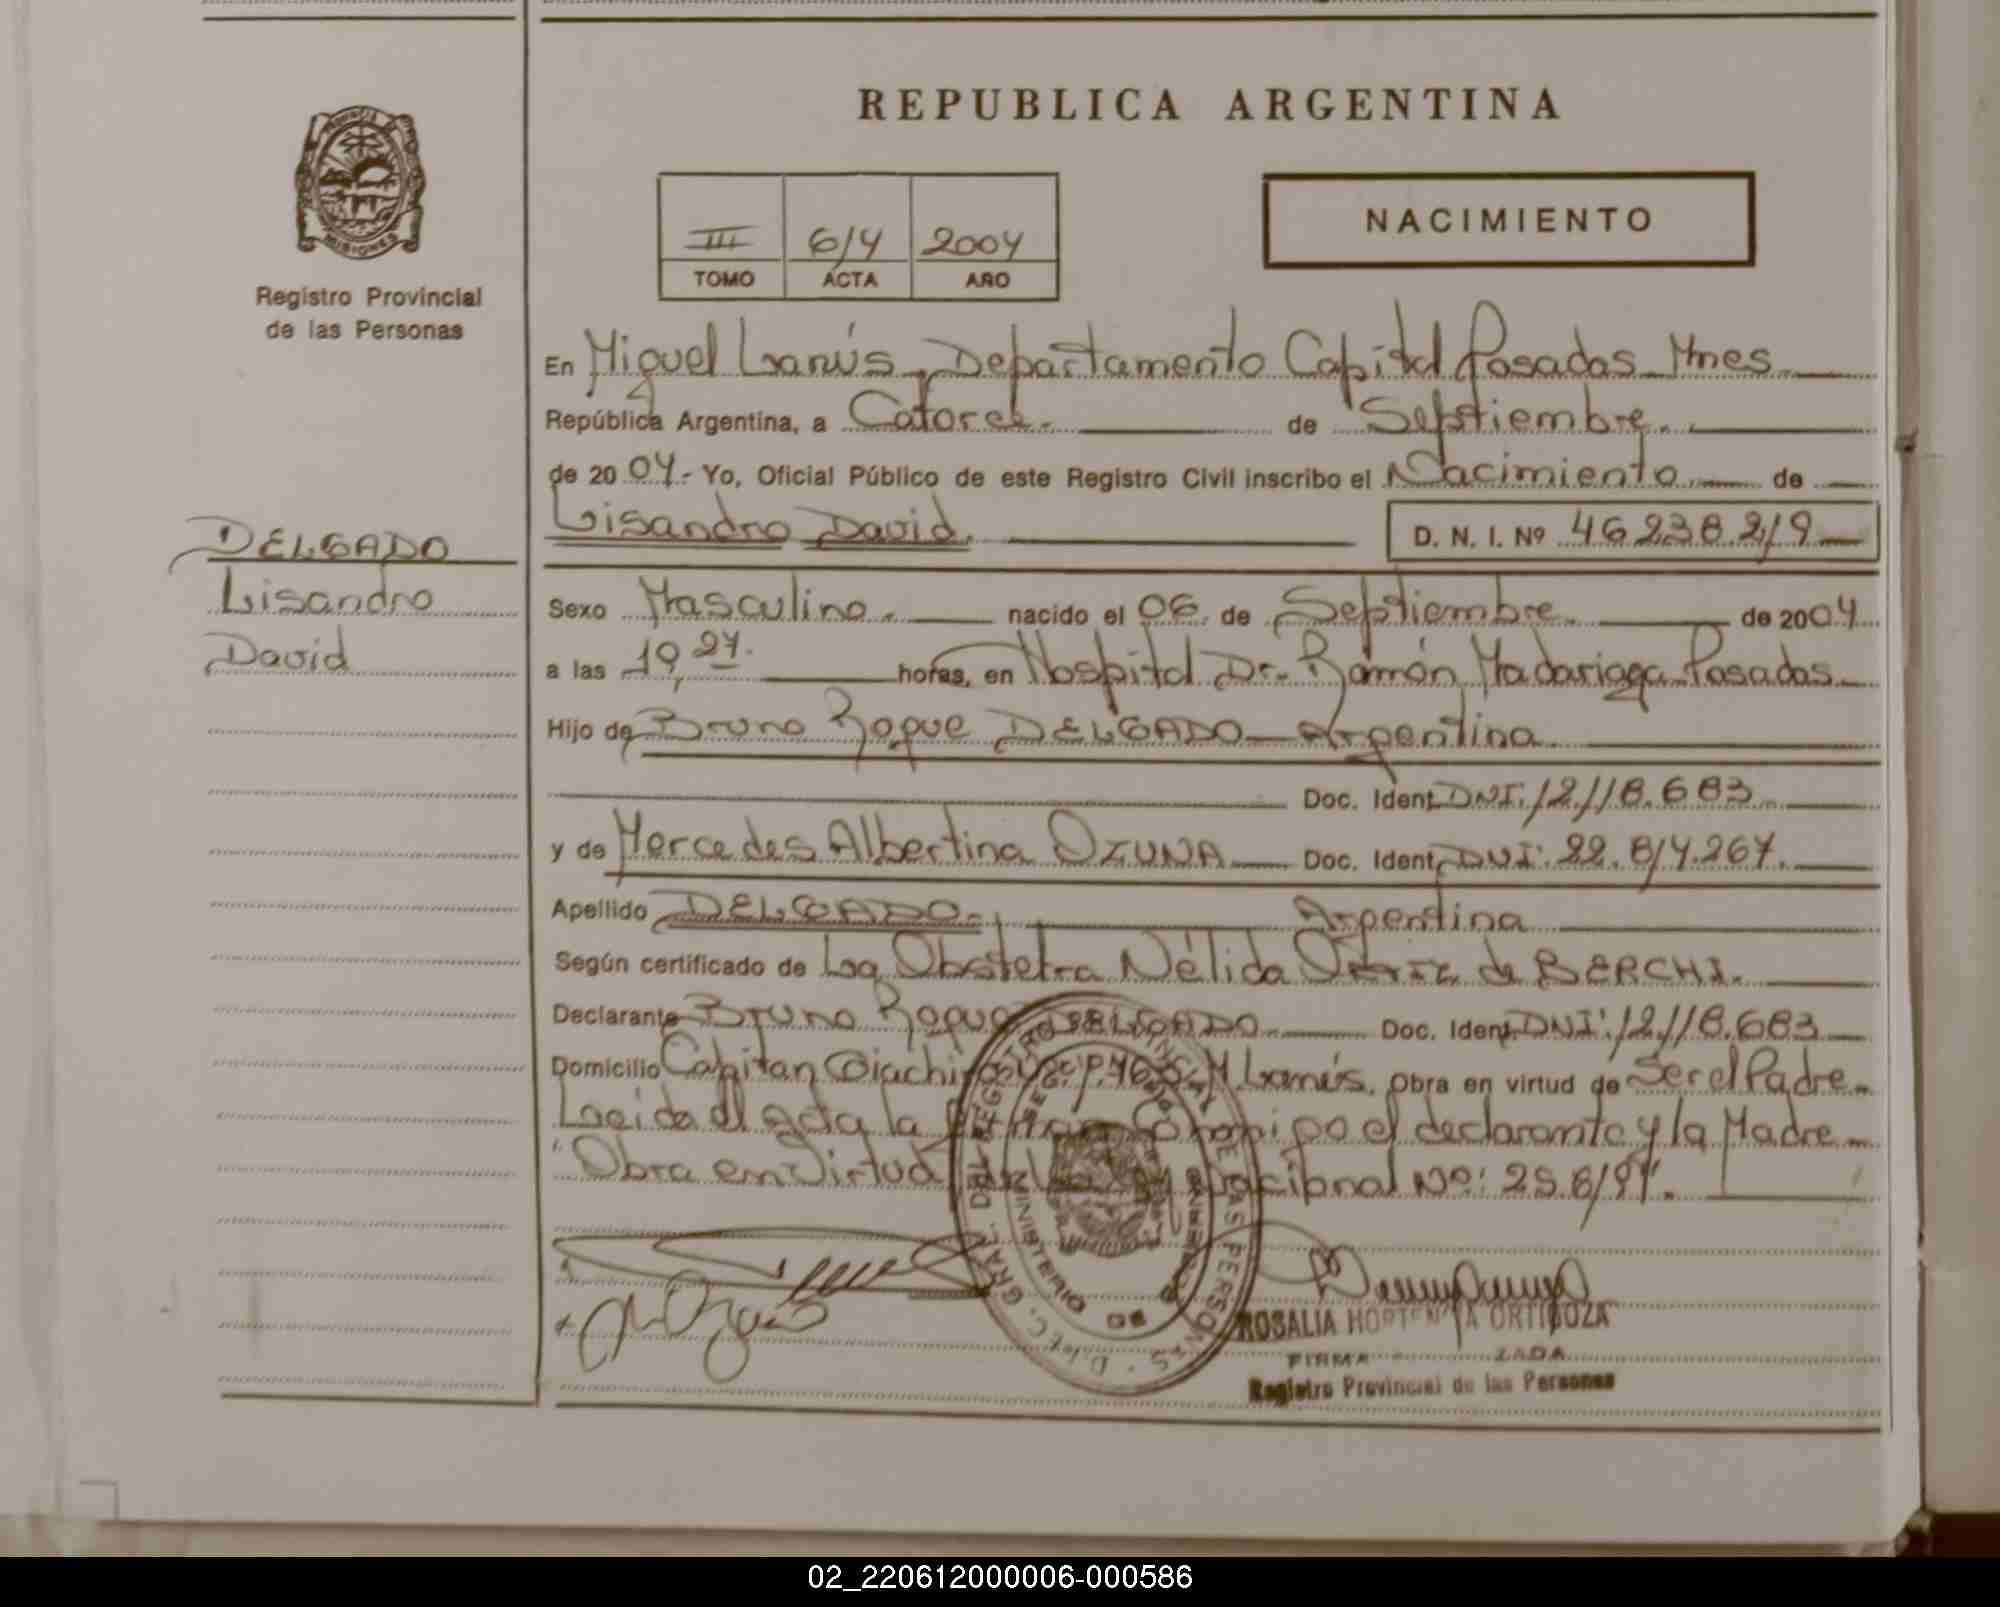 REPUBLICA ARGENTINA
NACIMIENTO
III 614 2004
TOMO ACTA AÑO
MISIONES
Registro Provincial
de las Personas
DELGADO
Lisandro
David
En Miguel Lanús, Departamento Capital Posadas Mnes
República Argentina, a Catorce.- de Septiembre.
de 2004.- Yo, Oficial Público de este Registro Civil inscribo el Nacimiento de
Lisandro David. D. N. I. Nº 46238219
Sexo Masculino. nacido el 06 de Septiembre. de 2004
a las 19,27. horas, en Hospital Dr. Ramón Madariaga Posadas
Hijo de Bruno Roque DELGADO - Argentina.
Doc. Ident. DNI: 12.118.683
y de Mercedes Albertina OZUNA Doc. Ident. DNI: 22.814.267.
Apellido DELGADO.- Argentina
Según certificado de La Obstetra Nélida de BERCHI.
Declarante Bruno Roque DELGADO Doc. Ident. DNI: 12.118.683
Domicilio Capitan M. Lanús. Obra en virtud de Ser el Padre
Leida el acta la conmigo el declarante y la Madre
"Obra en Virtud de la Ley Nacional Nº: 25.819".
DIREC. GRAL. DEL REGISTRO PROVINCIAL DE LAS PERSONAS
ROSALIA HORTENSIA ORTIGOZA
Registro Provincial de las Personas
02_220612000006-000586